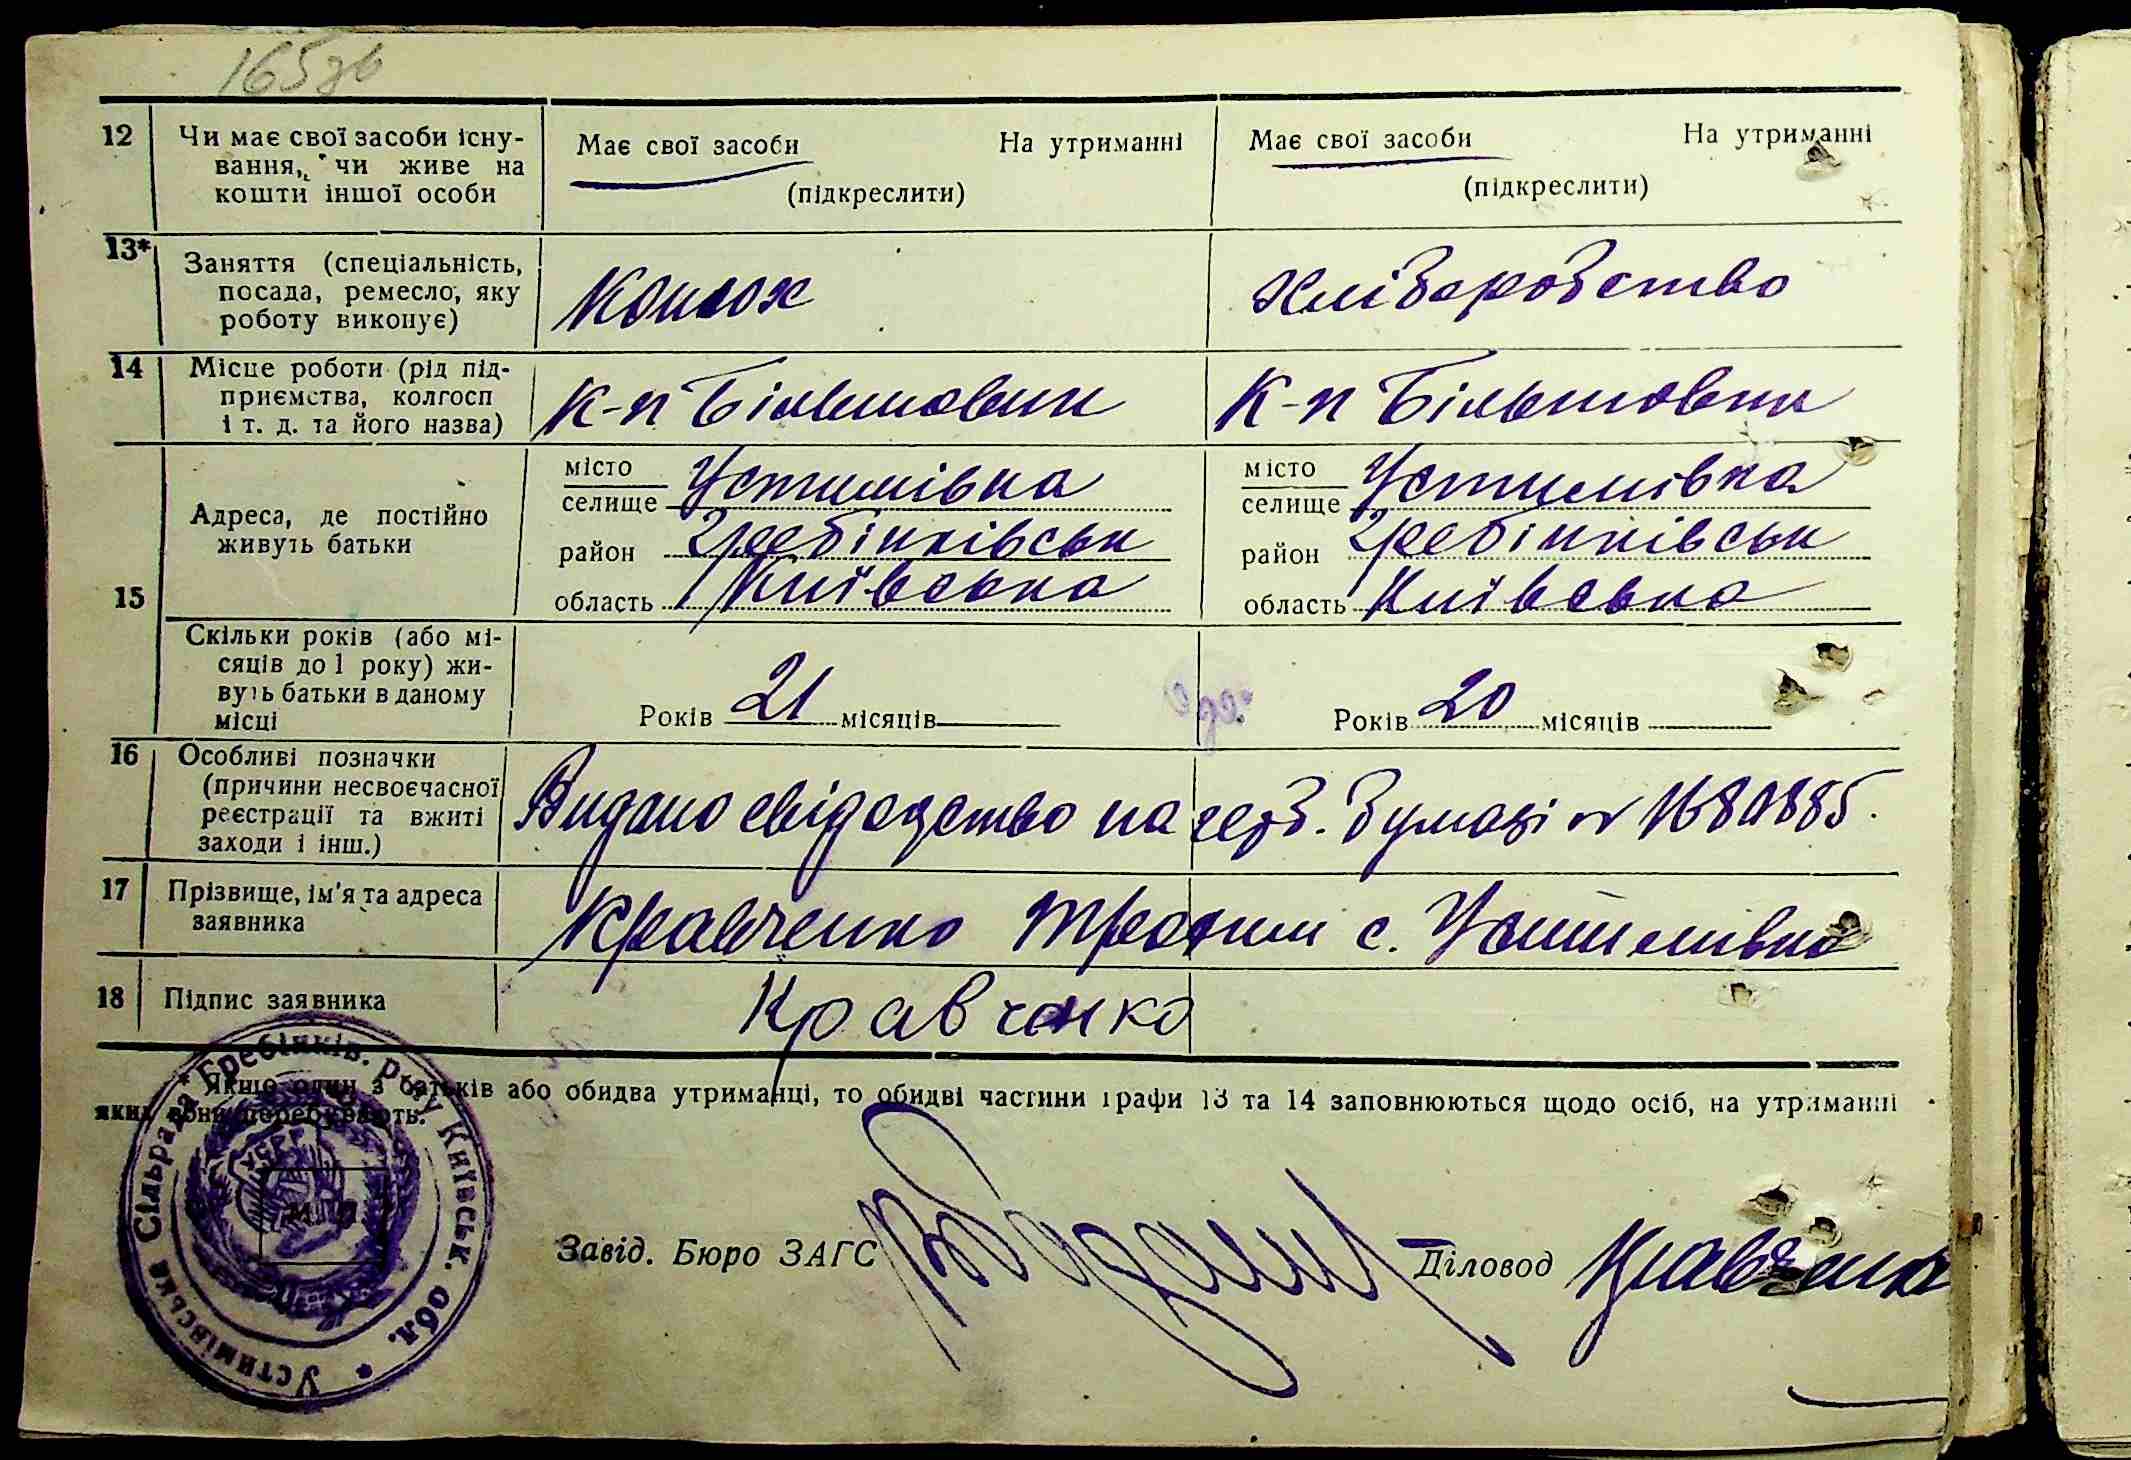 165 зв
12 Чи має свої засоби існу- Має свої засоби На утриманні Має свої засоби На утриманні
вання, чи живе на
кошти іншої особи (підкреслити) (підкреслити)
13* Заняття (спеціальність,
посада, ремесло, яку хліборобство
роботу виконує)
14 Місце роботи (рід під-
приємства, колгосп К-п Більшовик К-п Більшовик
і т. д. та його назва)
15 Адреса, де постійно
живуть батьки
місто
селище Устимівка
район Гребінківськ
область Київська
місто
селище Устимівка
район Гребінківськ
область Київська
Скільки років (або мі-
сяців до 1 року) жи-
вуть батьки в даному
місці
Років 21 місяців
Років 20 місяців
16 Особливі позначки
(причини несвоєчасної
реєстрації та вжиті
заходи і інш.)
Видано свідоцтво на герб. бумазі
17 Прізвище, ім'я та адреса
заявника
Кравченко Трохим с. Устимівка
18 Підпис заявника Кравченко
Якщо один з батьків або обидва утриманці, то обидві частини графи 13 та 14 заповнюються щодо осіб, на утриманні
яких вони перебувають.
Устимівська Сільрада * Гребінків. р-ну Київськ. обл. *
УСРР
М. П.
Завід. Бюро ЗАГС
Діловод Кравченко